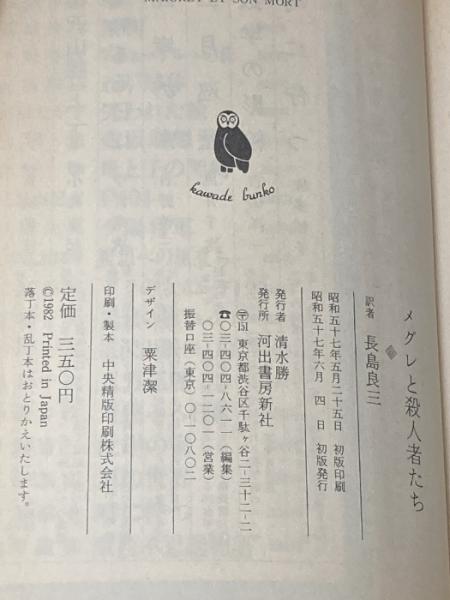 MAIGRET ET SON MORT
kawade bunko
メグレと殺人者たち
訳者 長島良三
昭和五十七年五月二十五日 初版印刷
昭和五十七年六月 四日 初版発行
発行者 清水勝
発行所 河出書房新社
〒151 東京都渋谷区千駄ヶ谷二-三十二-二
☎〇三-四〇四-八六一一（編集）
〇三-四〇四-一二〇一（営業）
振替口座（東京）〇-一〇八〇二
デザイン 粟津潔
印刷・製本 中央精版印刷株式会社
定価 三五〇円
©1982 Printed in Japan
落丁本・乱丁本はおとりかえいたします。